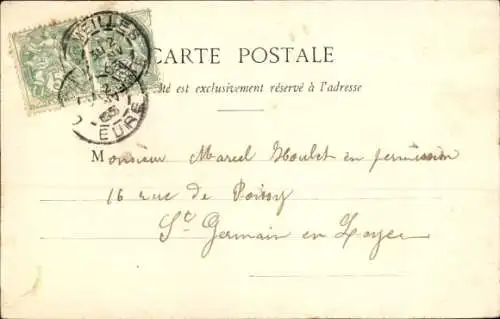 CARTE POSTALE
té est exclusivement réservé à l'adresse
EURE
Monsieur Marcel Houlet en permission
16 rue de Poissy
St Germain en Laye